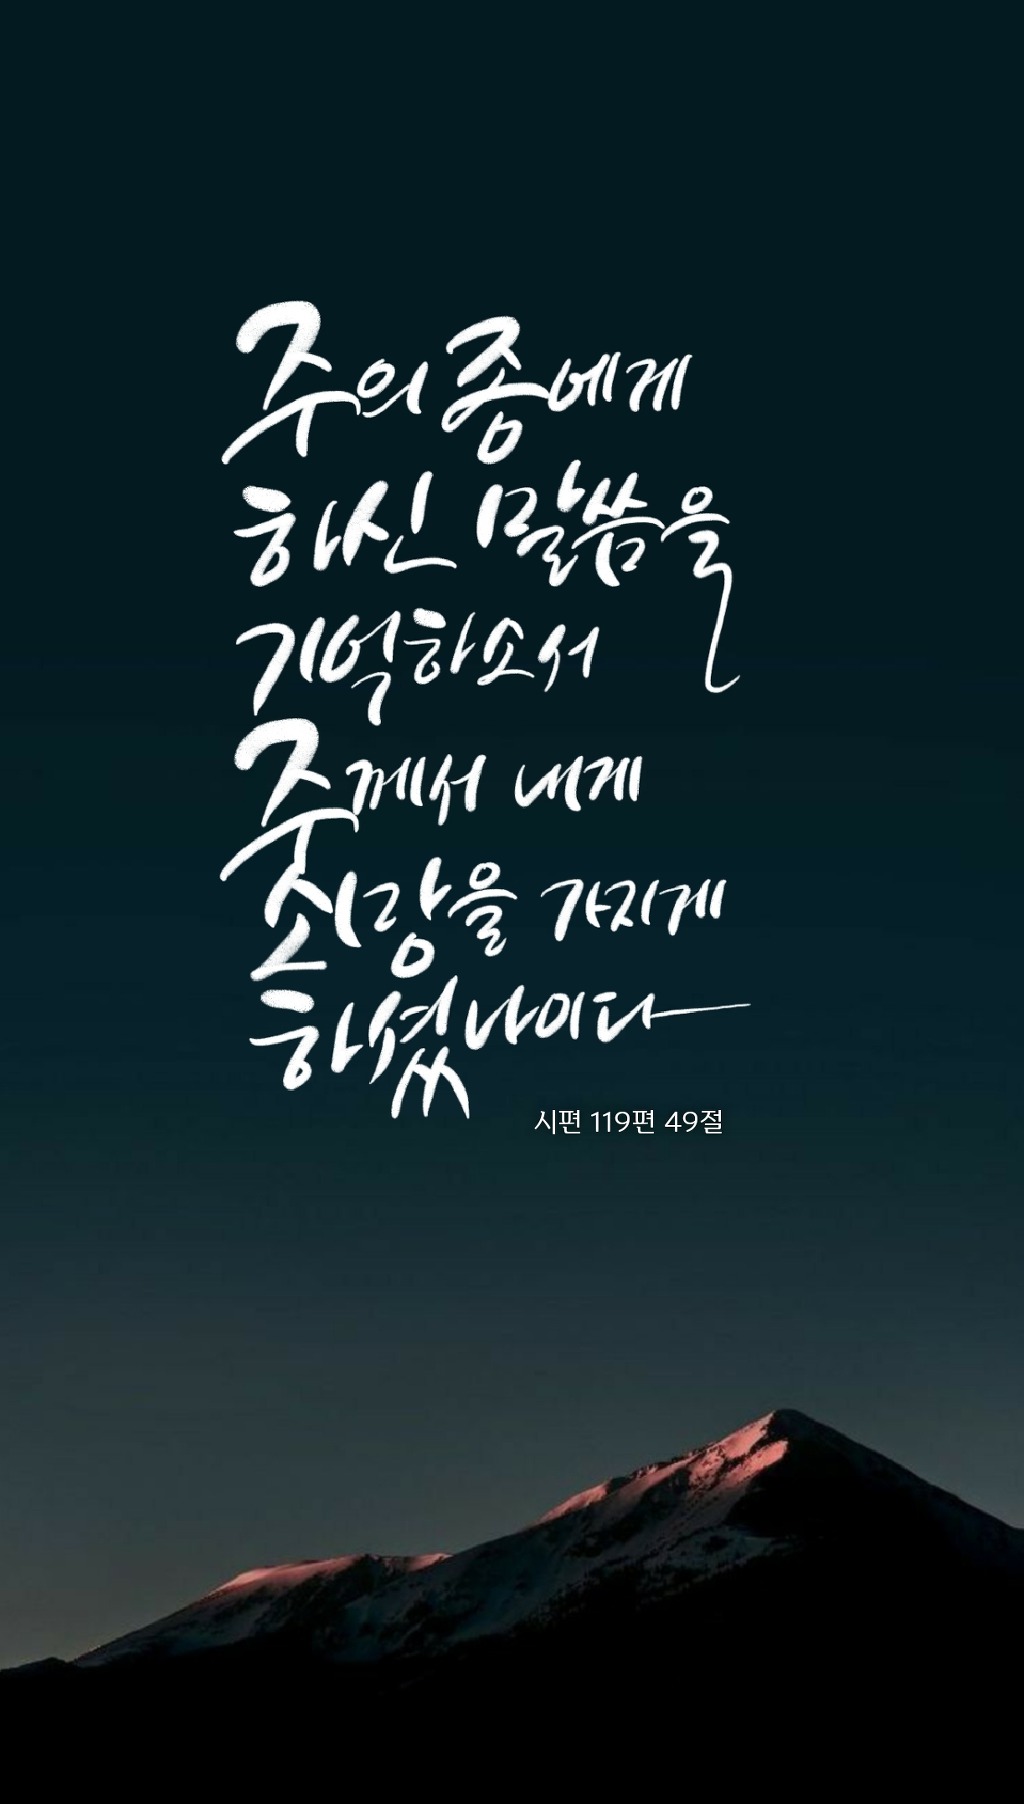 주의 종에게
하신 말씀을
기억하소서
주께서 내게
소망을 가지게
하셨나이다
시편 119편 49절